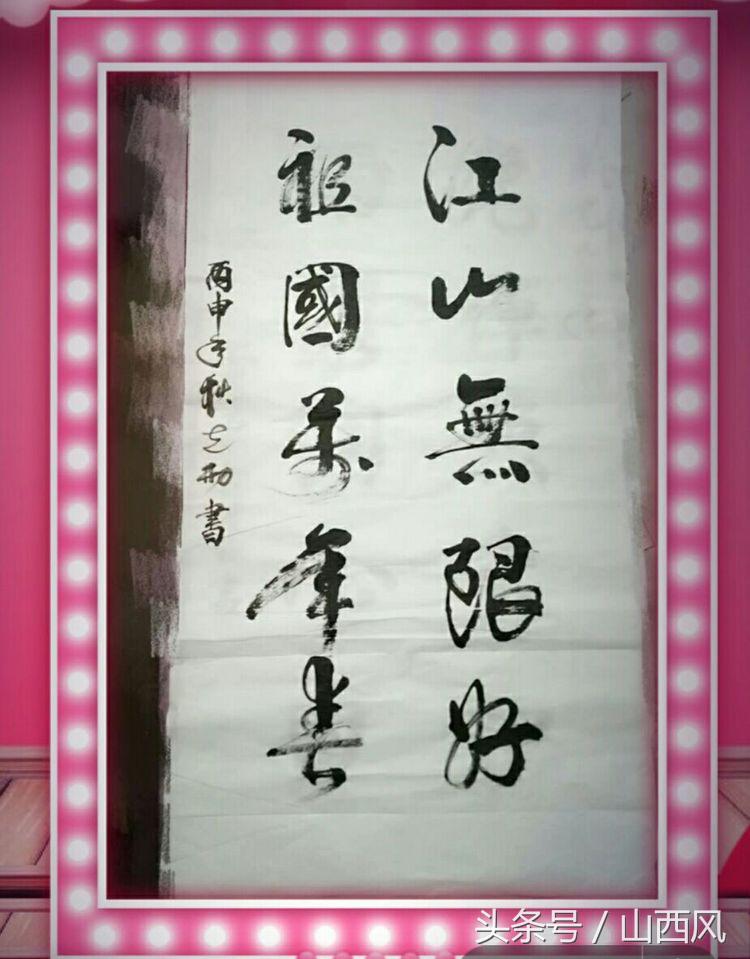 江山無限好
祖國萬年春
丙申年秋 書
头条号 / 山西风